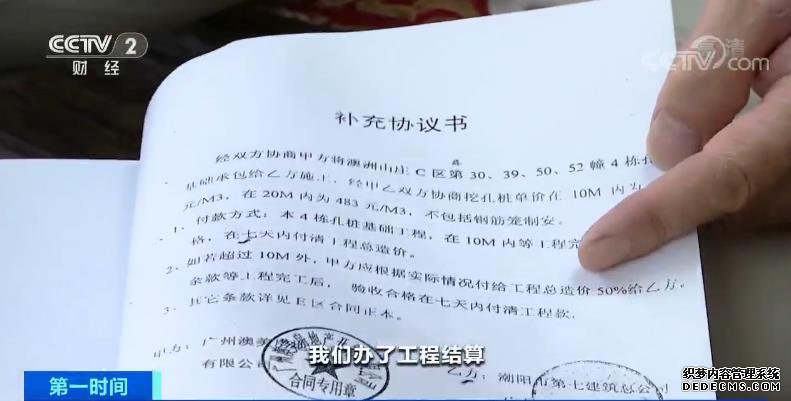 CCTV 2
财经
CCTV 高清
com
补充协议书
经双方协商甲方将澳洲山庄C区第30、39、50、52幢4栋孔
基础承包给乙方施工,经甲乙双方协商挖孔桩单价在10M内为
元/M3,在20M内为483元/M3,不包括钢筋笼制安。
1、付款方式:本4栋孔桩基础工程,在10M内等工程完
格,在七天内付清工程总造价。
2、如若超过10M外,甲方应根据实际情况付给工程总造价50%给乙方。
余款等工程完工后,验收合格在七天内付清工程款.
3、其它条款详见E区合同正本。
甲方:广州澳美
地产
有限公司
合同专用章
乙方:潮阳市第七建筑总公司
我们办了工程结算
第一时间